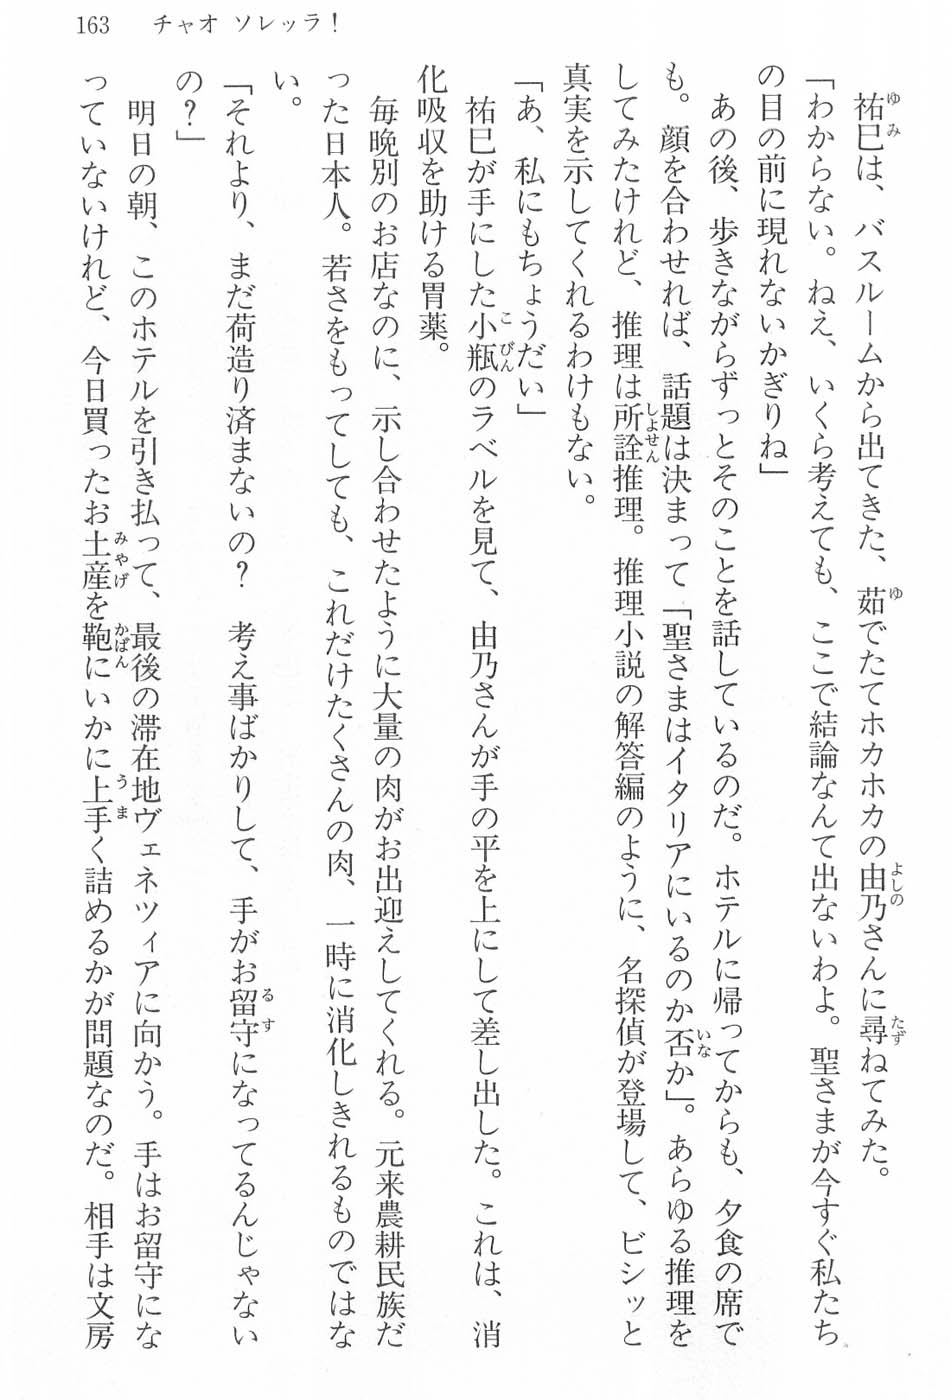 163　チャオ ソレッラ！
　祐巳は、バスルームから出てきた、茹でたてホカホカの由乃さんに尋ねてみた。
「わからない。ねえ、いくら考えても、ここで結論なんて出ないわよ。聖さまが今すぐ私たち
の目の前に現れないかぎりね」
　あの後、歩きながらずっとそのことを話しているのだ。ホテルに帰ってからも、夕食の席で
も。顔を合わせれば、話題は決まって「聖さまはイタリアにいるのか否か」。あらゆる推理を
してみたけれど、推理は所詮推理。推理小説の解答編のように、名探偵が登場して、ビシッと
真実を示してくれるわけもない。
「あ、私にもちょうだい」
　祐巳が手にした小瓶のラベルを見て、由乃さんが手の平を上にして差し出した。これは、消
化吸収を助ける胃薬。
　毎晩別のお店なのに、示し合わせたように大量の肉がお出迎えしてくれる。元来農耕民族だ
った日本人。若さをもってしても、これだけたくさんの肉、一時に消化しきれるものではな
い。
「それより、まだ荷造り済まないの？　考え事ばかりして、手がお留守になってるんじゃない
の？」
　明日の朝、このホテルを引き払って、最後の滞在地ヴェネツィアに向かう。手はお留守にな
っていないけれど、今日買ったお土産を鞄にいかに上手く詰めるかが問題なのだ。相手は文房